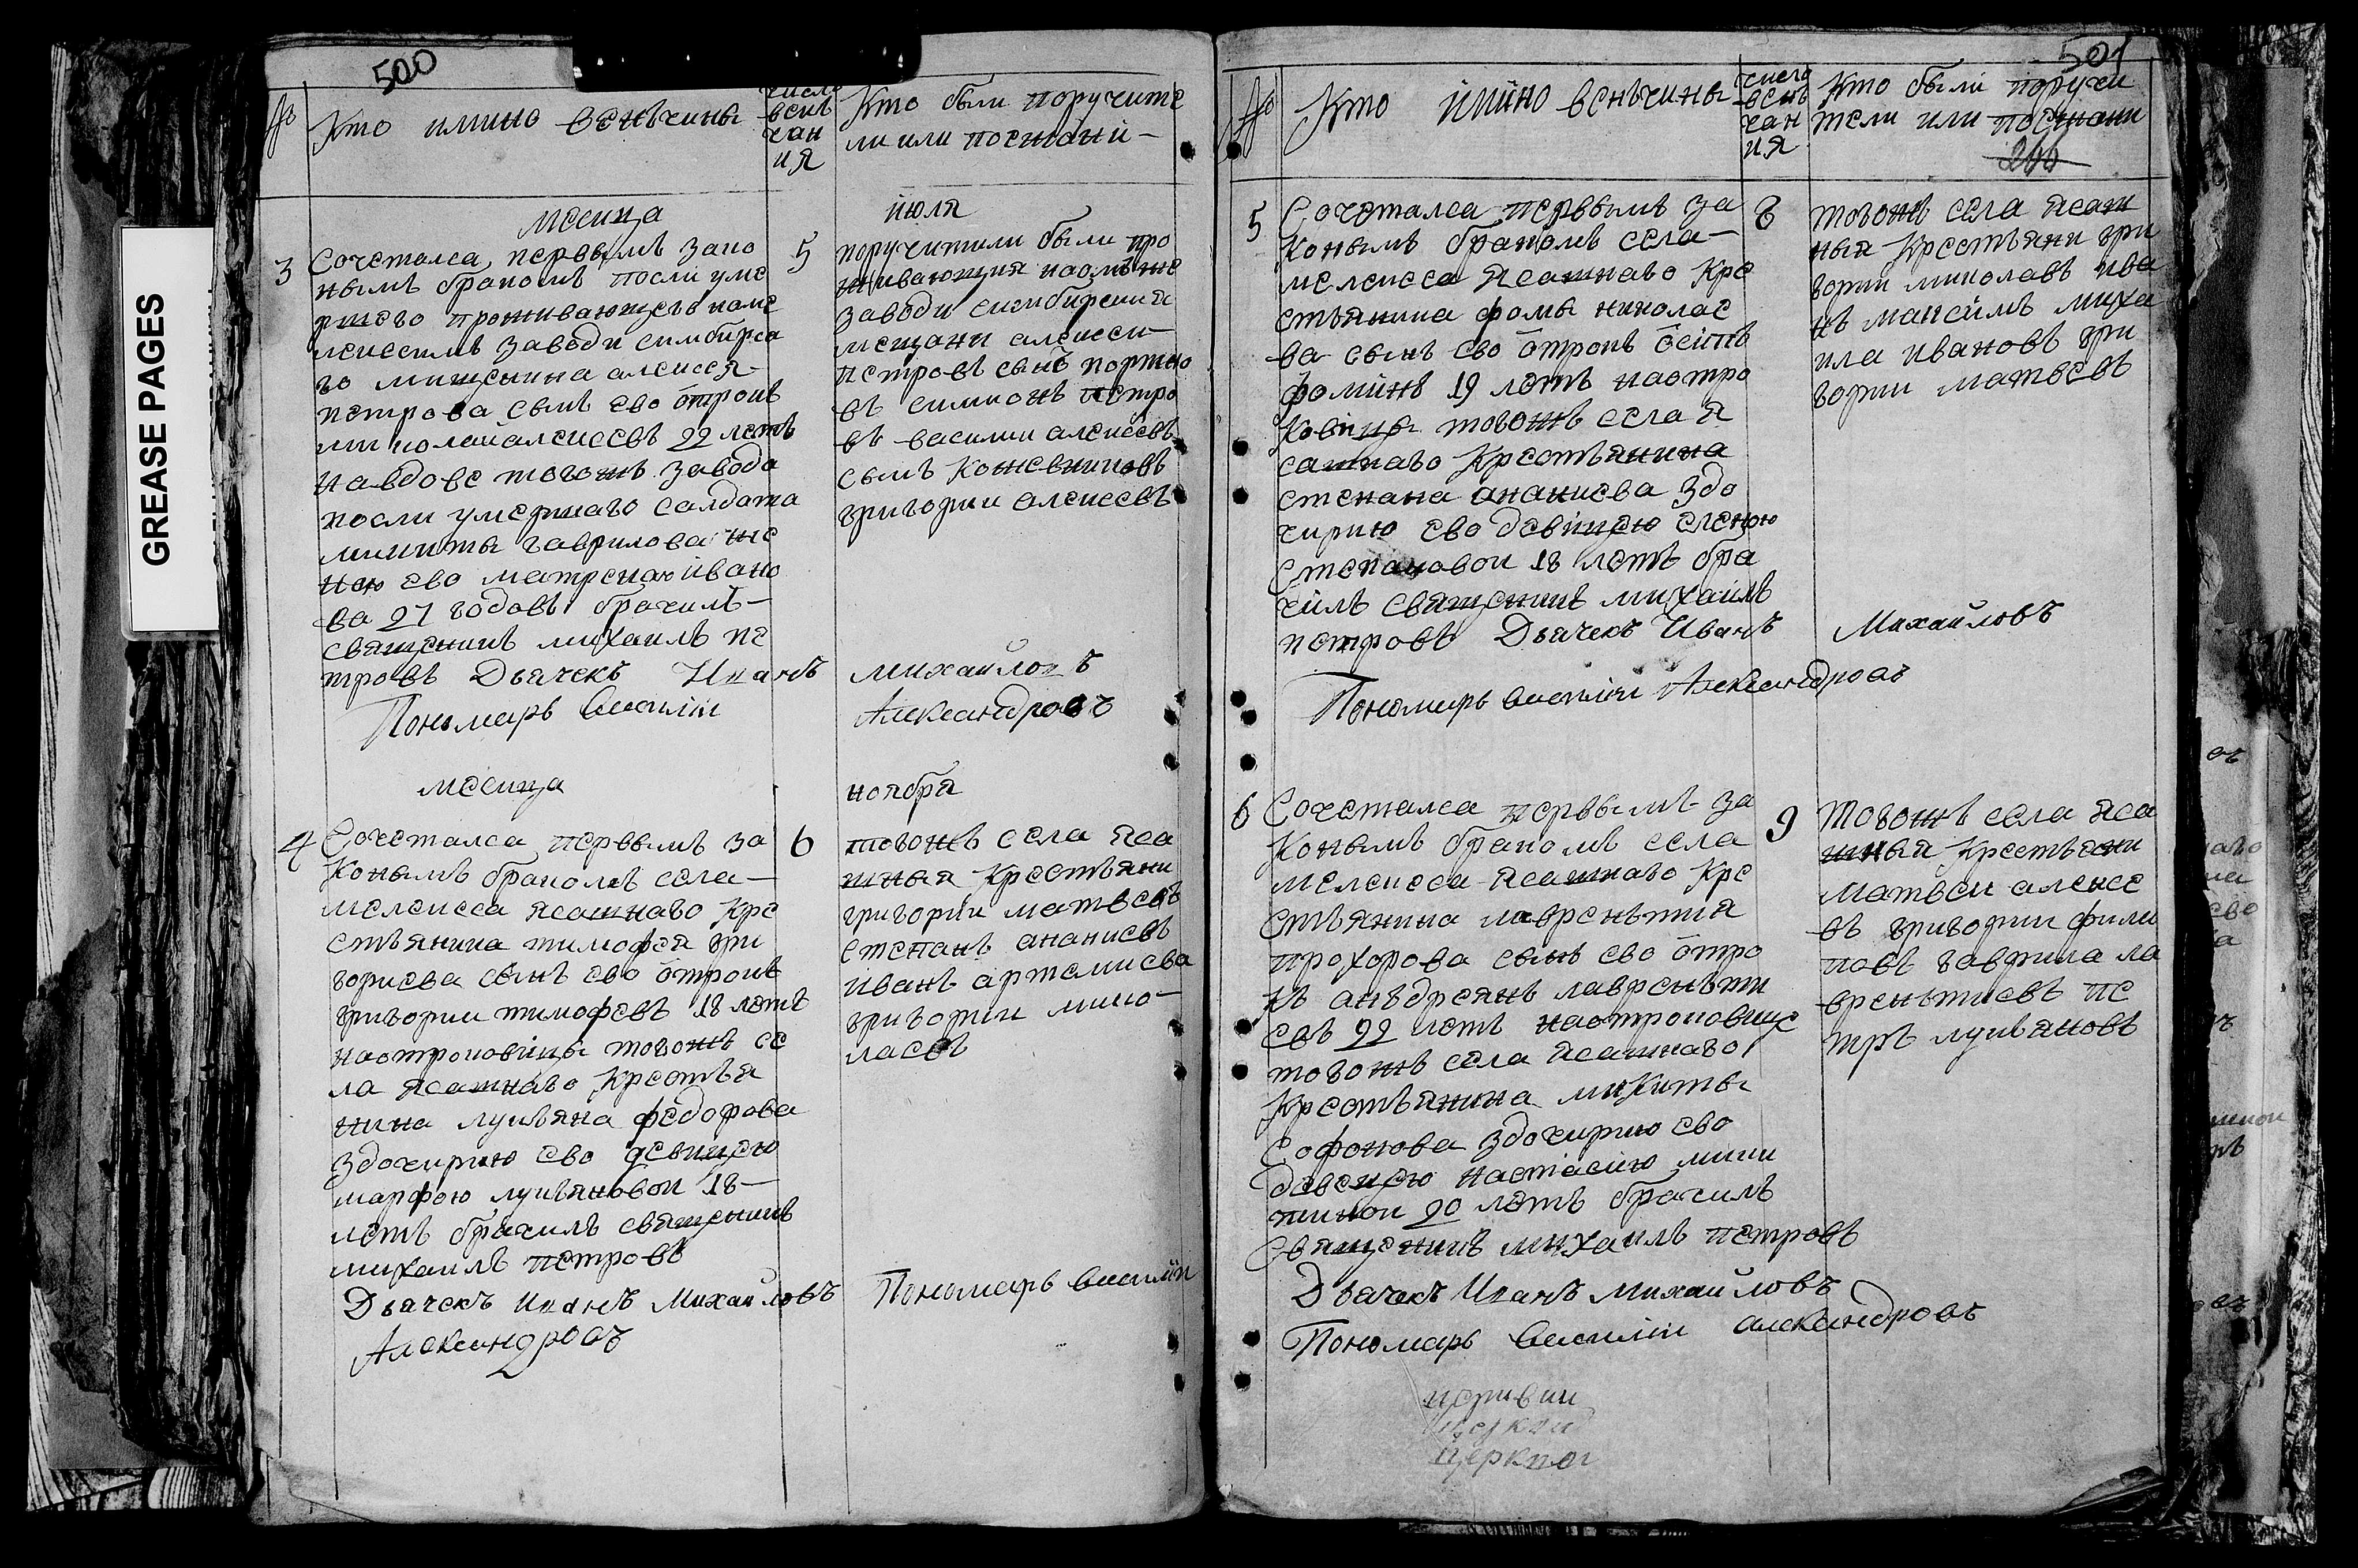 GREASE PAGES
500
№
Кто имино венъчины
число
венъ
чан
ия
Кто были поручите
ли или поежани—
месица
июля
3
Сочеталса первымъ зако
нымъ бракомъ посли уме
ршего проживающего наме
лекескомъ заводи симбирска
го мищенина алексея
петрова сынъ ево отрокъ
николаи алексеевъ 22 летъ
на вдове тогожъ завода
посли умершаго салдата
никиты гаврилова же
ною ево матреною ивано
ва 27 годовъ брачилъ—
священникъ михаилъ пе
тровъ Дьячекъ Иванъ
Пономарь Василiи
5
поручители были про
живающия наомъ же
заводи симбирския
мещани алексеи—
петровъ сынъ портно
въ симионъ петро
въ василии алексеевъ
сынъ Кожевниковъ
григории алексеевъ
михаиловъ
Александровъ
месица
ноября
4
Сочеталса первымъ за
конымъ бракомъ села—
мелекеса ясашнаго Кре
стьянина тимофея гри
гориева сынъ ево отрокъ
григории тимофевъ 18 летъ
наотроковицы тогожъ се
ла ясашнаго Крестья
нина лукьяна федорова
здочирию ево девицею
марфою лукьяновои 18—
летъ брачилъ священникъ
михаилъ петровъ
Дьячекъ Иванъ Михаиловъ
Александровъ
6
тогожъ села яса
шныя Крестьяни
григории матвеевъ
степанъ ананиевъ
иванъ артемиева
григории нико—
лаевъ
Пономарь Василiи
501
№
Кто имино венъчины
число
венъ
чан
ия
Кто были поручи
тели или поежани
5
Сочеталса первымъ за
конымъ бракомъ села—
мелекеса ясашнаго Кре
стьянина фомы николае
ва сынъ ево отрокъ осипъ
фоминъ 19 летъ наотро
ковицы тогожъ села я
сашнаго Крестьянина
степана ананиева здо
чирию ево девицею еленою
степановои 18 летъ бра
чилъ священникъ михаилъ
петровъ Дьячекъ Иванъ
Пономарь Василiи Александровъ
8
тогожъ села ясаш
ныя Крестьяни гри
гории николавъ ива
нъ максимъ миха
ила ивановъ гри
гории матвевъ
Михаиловъ
6
Сочеталса первымъ за
конымъ бракомъ села
мелекеса ясашнаго Кре
стьянина лавренътия
прохорова сынъ ево отро
къ анъдреянъ лавренъти
евъ 22 летъ наотроковице
тогожъ села ясашнаго
Крестьянина никиты
Софонова здочирию ево
девецею настасiю ники
тинои 20 летъ брачилъ
Священикъ михаилъ петровъ
Дьячекъ Иванъ Михаиловъ
Пономарь Василiи александровъ
9
тогожъ села яса
шныя Крестьяни
матвеи алексе
въ григории фили
повъ гаврила ла
вренътиевъ пе
тръ лукьяновъ